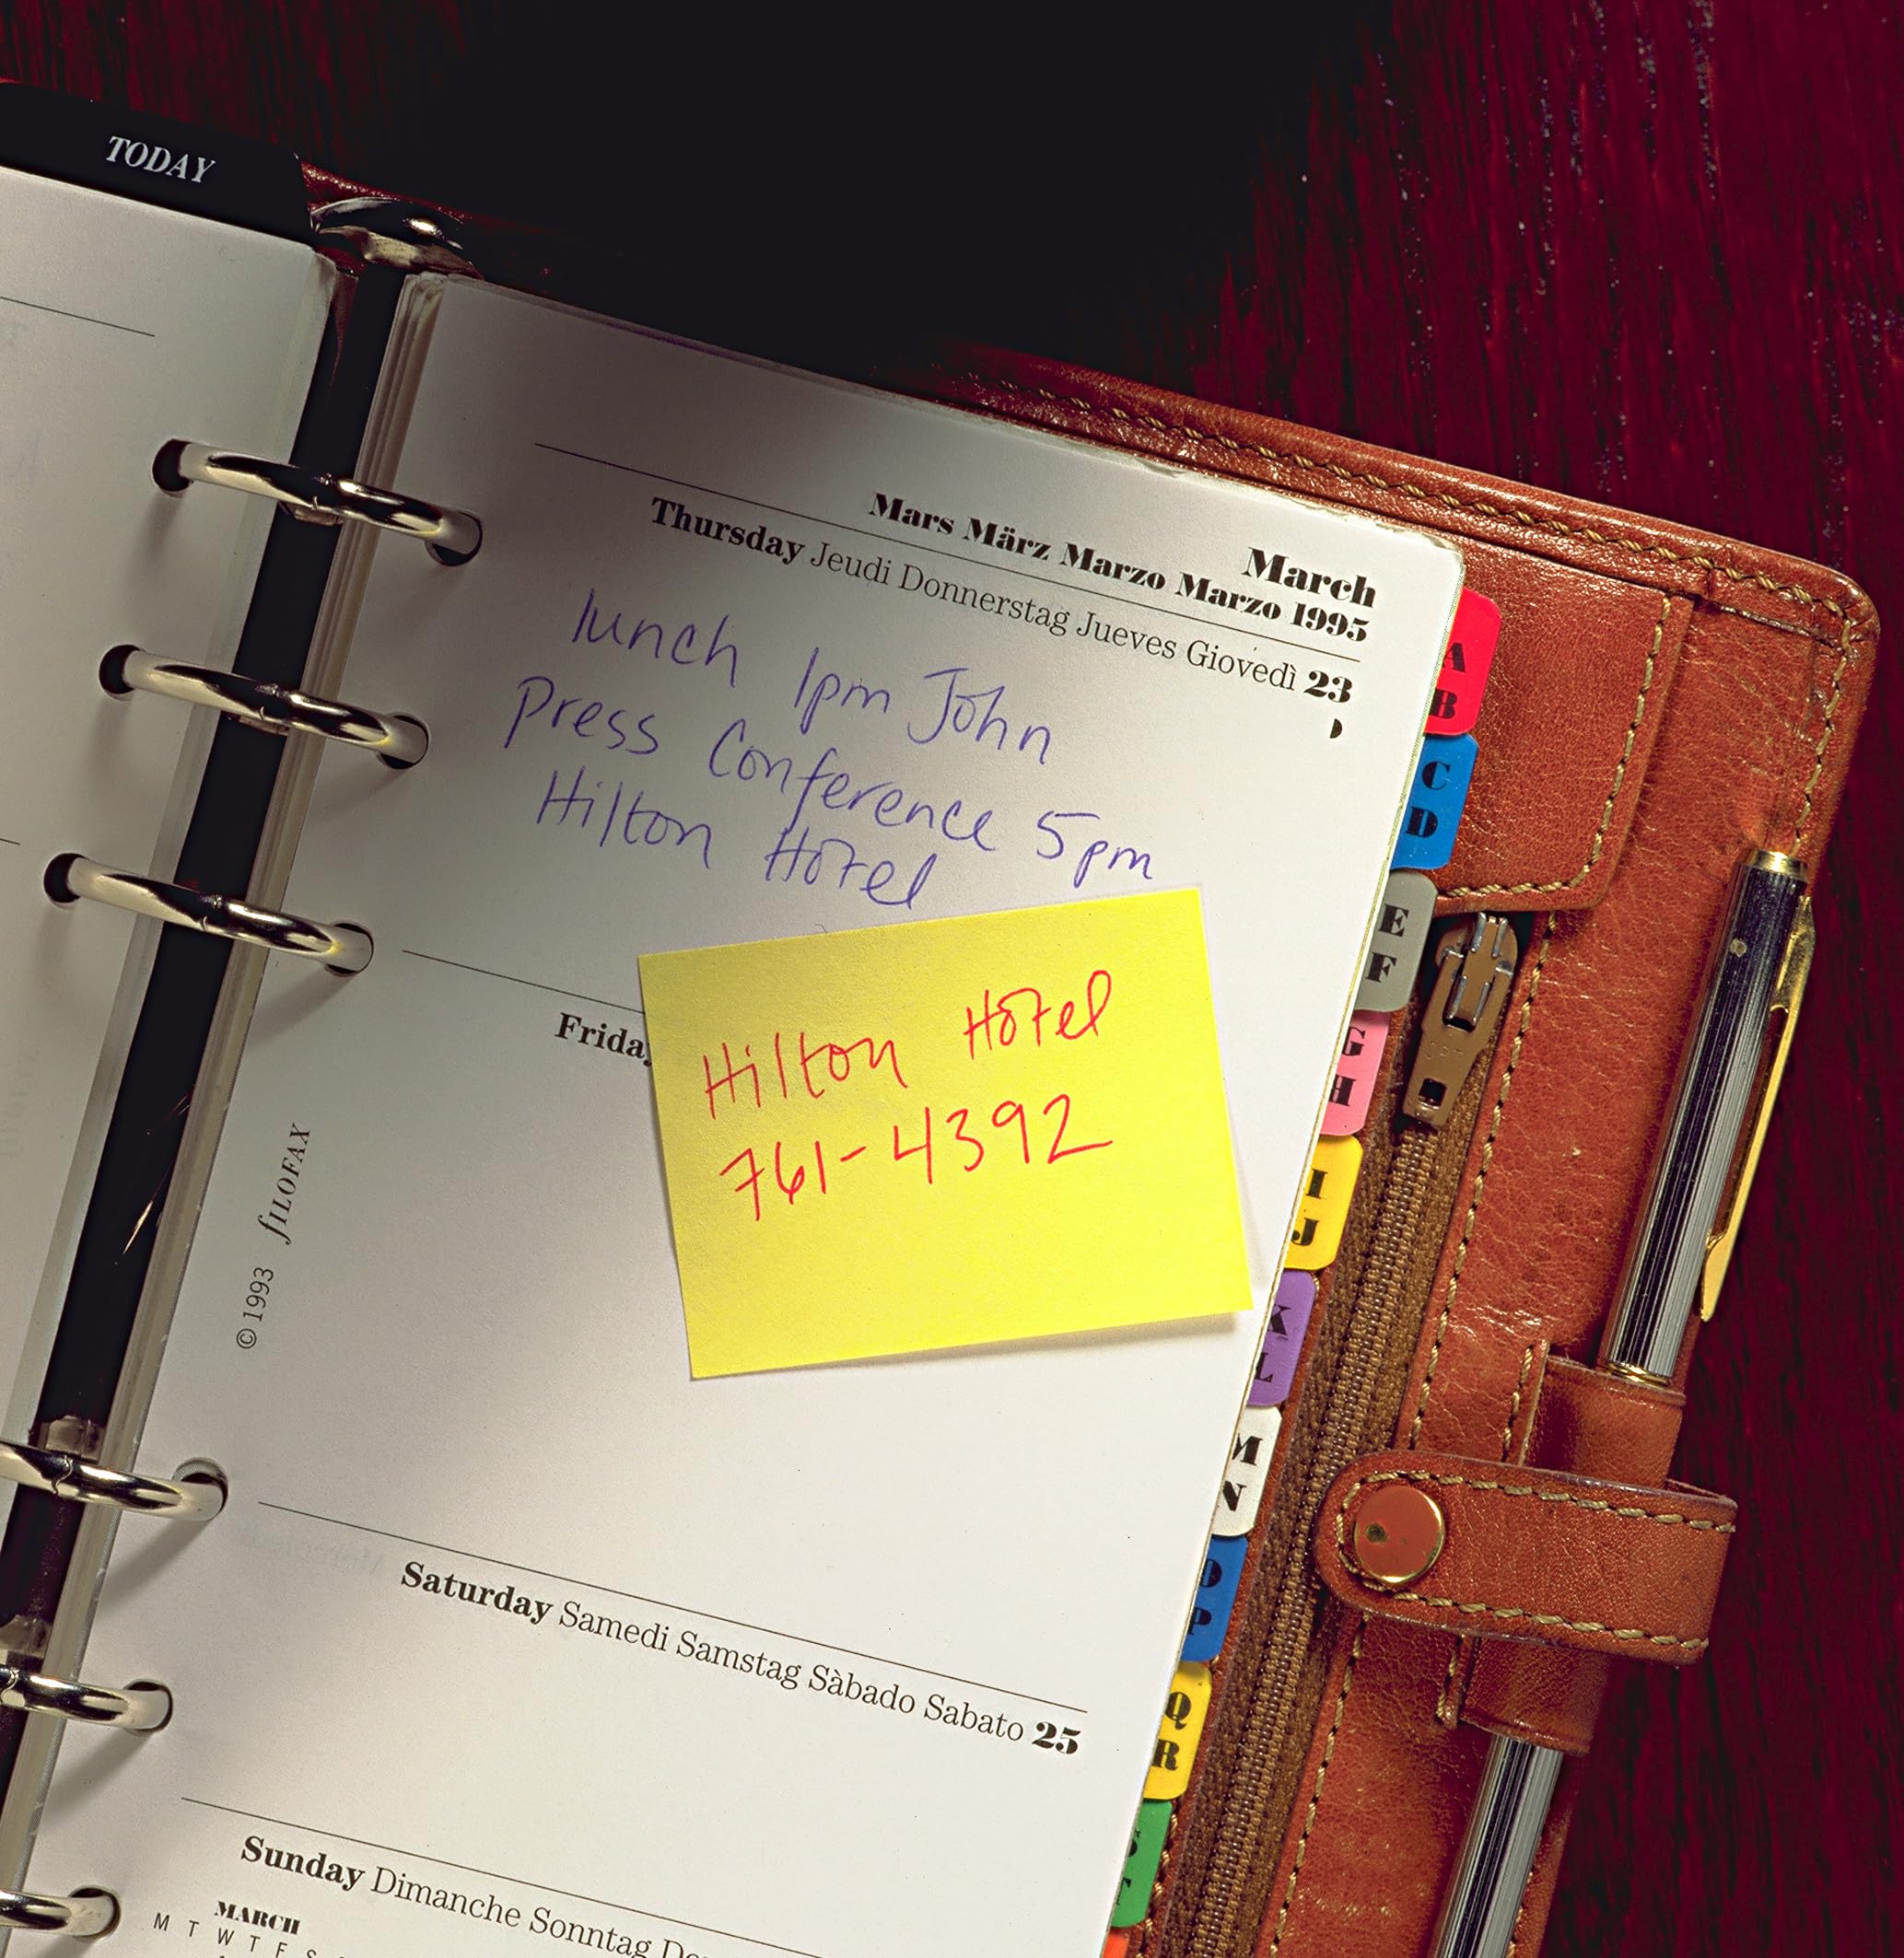 TODAY
March
Mars März Marzo Marzo 1995
Thursday Jeudi Donnerstag Jueves Giovedì 23
lunch 1pm John
Press Conference 5pm
Hilton Hotel
Hilton Hotel
761-4392
Friday
© 1993 fILOFAX
Saturday Samedi Samstag Sàbado Sabato 25
Sunday Dimanche Sonntag
MARCH
M T W T F S
A
B
C
D
E
F
G
H
I
J
K
L
M
N
O
P
Q
R
S
T